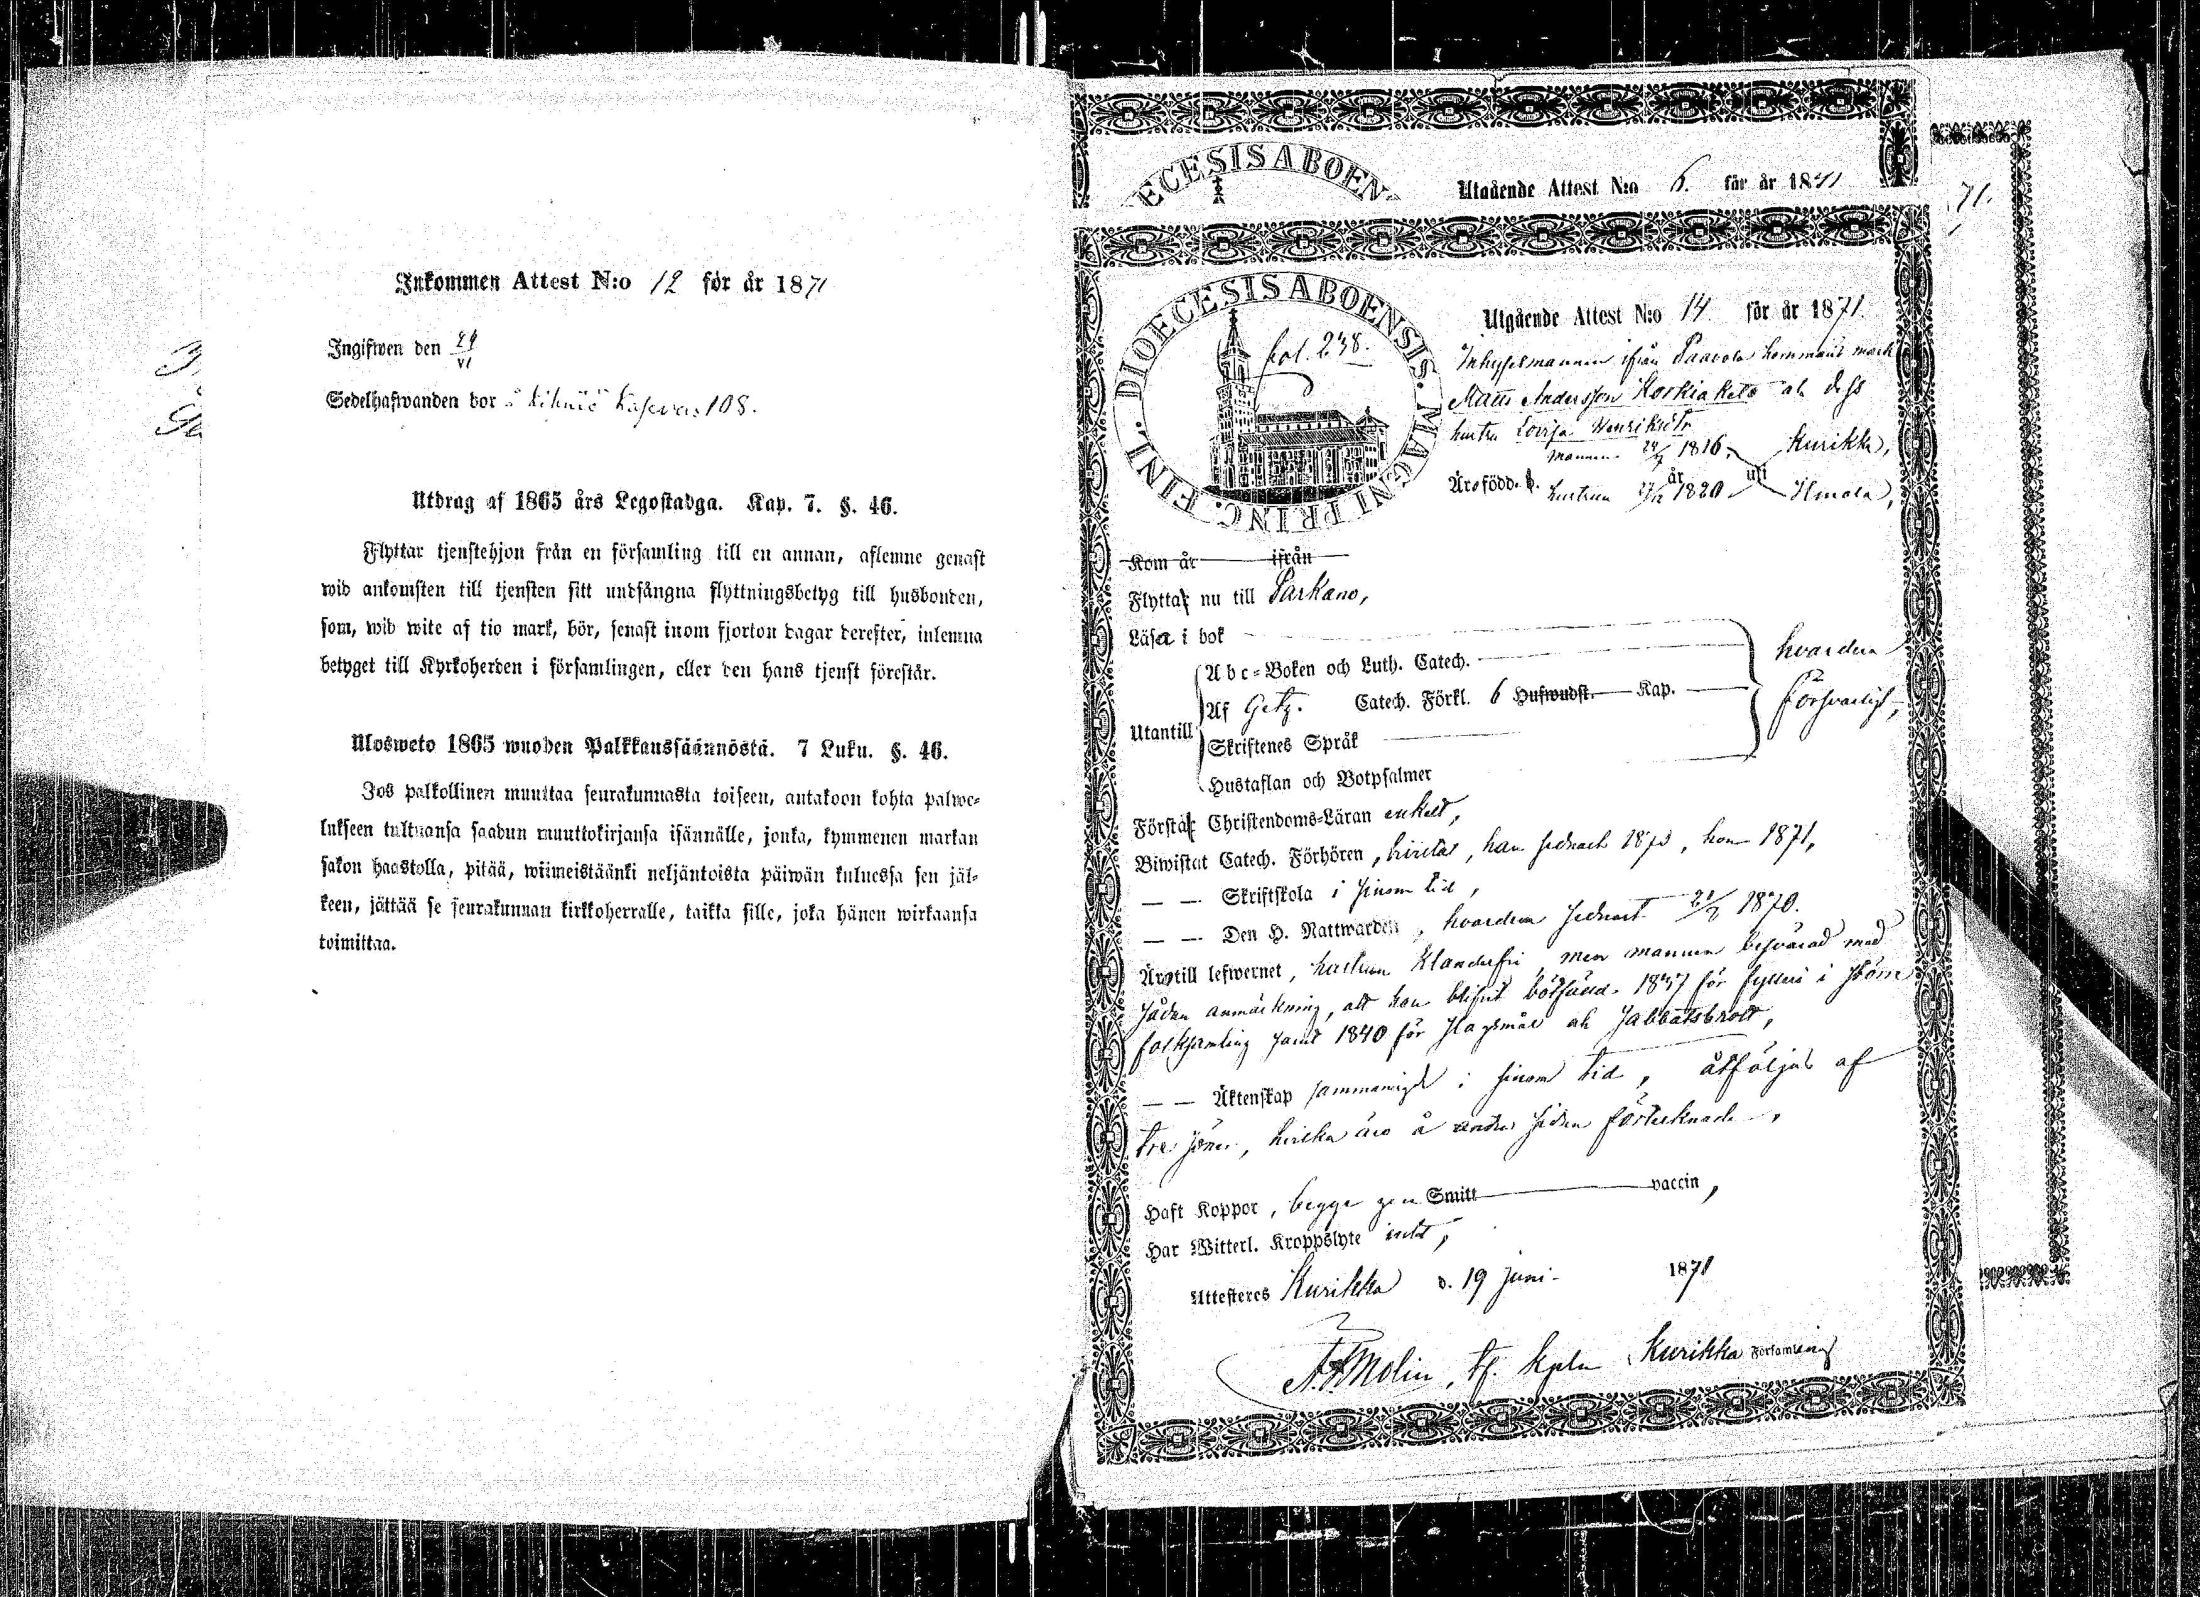 Inkommen Attest N:o 12 för år 1871
Ingifwen den 29/VI
Sedelhafwanden bor å Kihniö 108.
Utdrag af 1865 års Legostadga. Kap. 7. §. 46.
Flyttar tjenstehjon från en församling till en annan, aflemne genast
wid ankomsten till tjensten sitt undfångna flyttningsbetyg till husbonden,
som, wid wite af tio mark, bör, senast inom fjorton dagar derefter, inlemna
betyget till Kyrkoherden i församlingen, eller den hans tjenst förestår.
Ulosweto 1865 wuoden Palkkaussäännöstä. 7 Luku. §. 46.
Jos palkollinen muuttaa seurakunnasta toiseen, antakoon kohta palwe-
lukseen tultuansa saadun muuttokirjansa isännälle, jonka, kymmenen markan
sakon haastolla, pitää, wiimeistäänki neljäntoista päiwän kuluessa sen jäl-
keen, jättää se seurakunnan kirkkoherralle, taikka sille, joka hänen wirkaansa
toimittaa.
ECESIS ABOEN
Utgående Attest N:o 6. för år 1871
71.
DIOECESIS ABOENSIS. MAGNI PRINC. FINL.
fol. 238.
Utgående Attest N:o 14. för år 1871.
Inhysesmannen ifrån Paavola hemmans mark
Matts Andersson Korkiaketo och dess
hustru Lovisa Henriksdtr
mannen 1816, Kurikka,
Äro född. d. hustrun 27/12 år 1820 uti Ilmola,
Kom år ifrån
Flytta nu till Parkano,
Läsa i bok
Abc-Boken och Luth. Catech.
hvardera
Utantill
Af Getz. Catech. Förkl. 6 Hufwudst. Kap.
försvarligt,
Skriftenes Språk
Hustaflan och Botpsalmer
Förstå Christendoms-Läran enkelt,
Biwistat Catech. Förhören, han sednast, hon 1871,
— — Skriftskola i sinom tid,
— — Den H. Nattwarden, hvardera sednast 1870.
Äro till lefwernet, hustrun klanderfri men mannen besvärad med
sådan anmärkning, att han blifvit bötfälld 1837 för fylleri i
folksamling samt 1840 för slagsmål och sabbatsbrott,
— — Äktenskap sammanvigde i sinom tid, åtföljas af
tre söner, hvilka äro å andra sidan förtecknade,
Haft Koppor, begge Smitt vaccin,
Har Witterl. Kroppslyte intet,
Attesteres Kurikka d. 19 Juni 1871
Molin, tf. Kpln Kurikka Församling